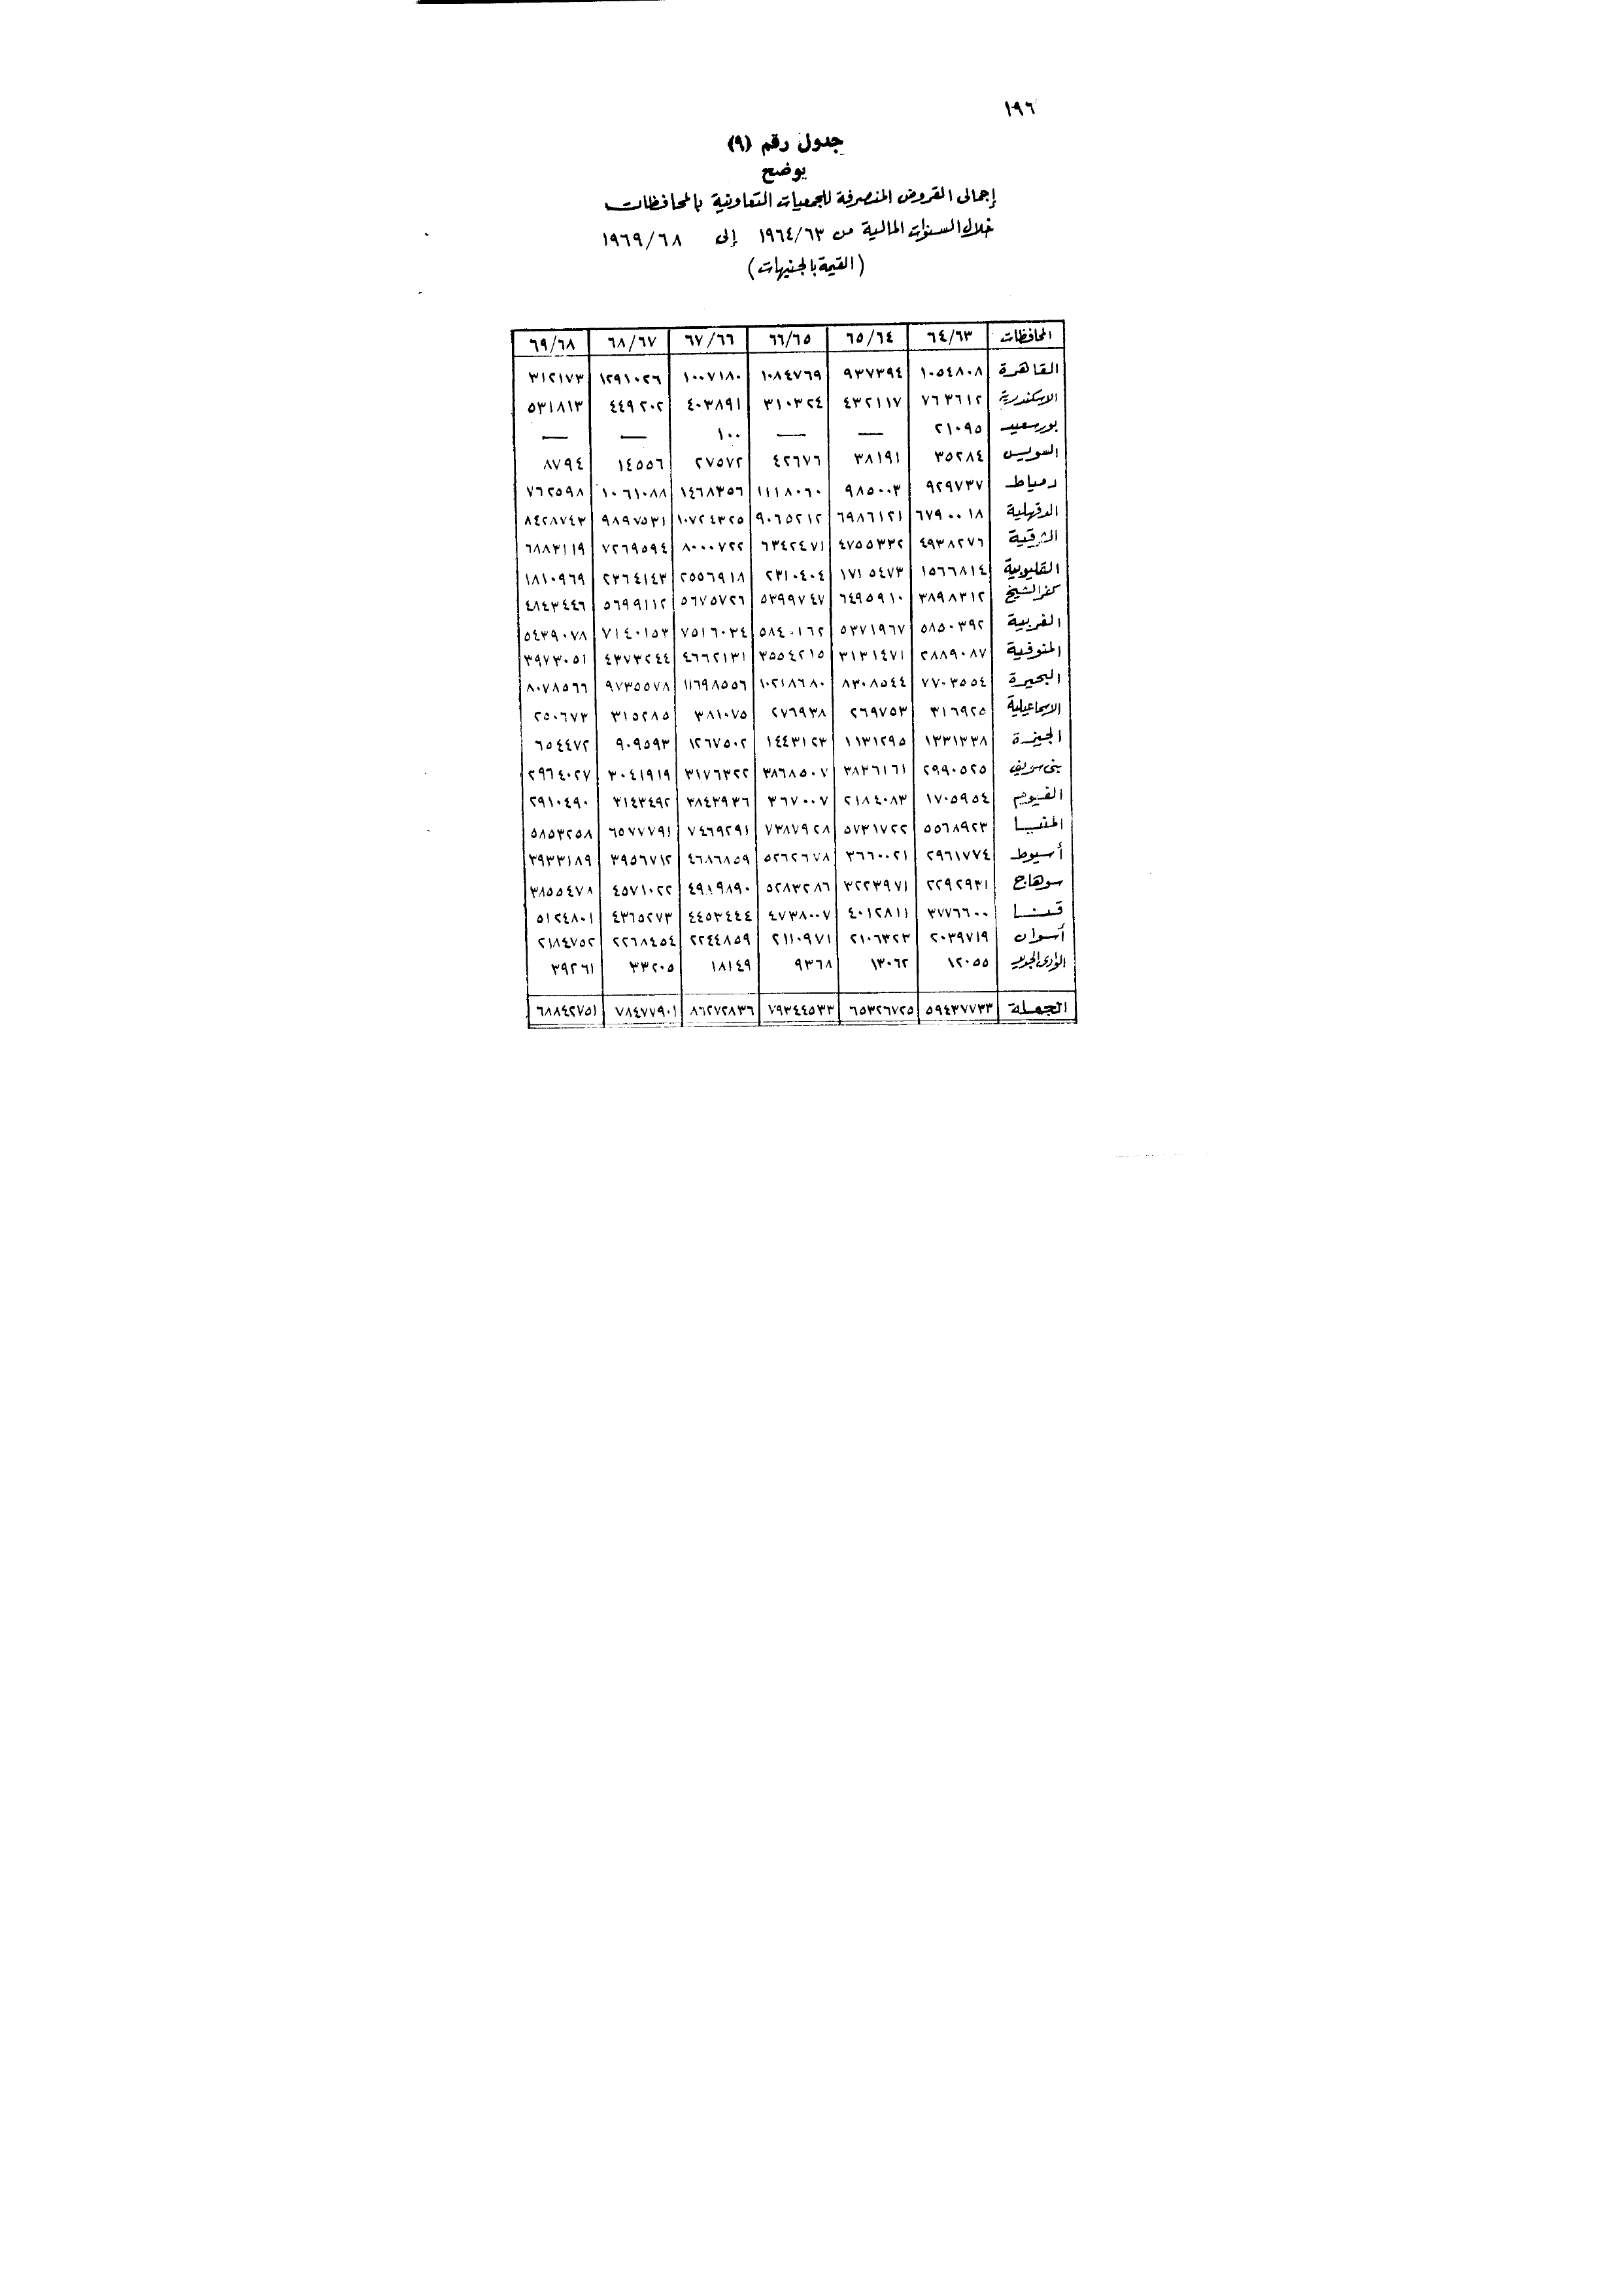 ١٩٦
جدول رقم (٩)
يوضح
إجمالى القروض المنصرفة للجمعيات التعاونية بالمحافظات
خلال السنوات المالية من ١٩٦٤/٦٣ إلى ١٩٦٩/٦٨
(القيمة بالجنيهات)
المحافظات ٦٤/٦٣ ٦٥/٦٤ ٦٦/٦٥ ٦٧/٦٦ ٦٨/٦٧ ٦٩/٦٨
القاهرة ١٠٥٤٨٠٨ ٩٣٧٣٩٤ ١٠٨٤٧٦٩ ١٠٠٧١٨٠ ١٢٩١٠٢٦ ٣١٢١٧٣
الاسكندرية ٧٦٣٦١٢ ٤٣٢١١٧ ٣١٠٣٢٤ ٤٠٣٨٩١ ٤٤٩٢٠٢ ٥٣١٨١٣
بورسعيد ٢١٠٩٥ — — ١٠٠ — —
السويس ٣٥٢٨٤ ٣٨١٩١ ٤٢٦٧٦ ٢٧٥٧٢ ١٤٥٥٦ ٨٧٩٤
دمياط ٩٢٩٧٣٧ ٩٨٥٠٠٣ ١١١٨٠٦٠ ١٤٦٨٣٥٦ ١٠٦١٠٨٨ ٧٦٢٥٩٨
الدقهلية ٦٧٩٠٠١٨ ٦٩٨٦١٢١ ٩٠٦٥٢١٢ ١٠٧٢٤٣٢٥ ٩٨٩٧٥٣١ ٨٤٢٨٧٤٣
الشرقية ٤٩٣٨٢٧٦ ٤٧٥٥٣٣٢ ٦٣٤٢٤٧١ ٨٠٠٠٧٢٢ ٧٢٦٩٥٩٤ ٦٨٨٣١١٩
القليوبية ١٥٦٦٨١٤ ١٧١٥٤٧٣ ٢٣١٠٤٠٤ ٢٥٥٦٩١٨ ٢٣٦٤١٤٣ ١٨١٠٩٦٩
كفرالشيخ ٣٨٩٨٣١٢ ٦٤٩٥٩١٠ ٥٣٩٩٧٤٧ ٥٦٧٥٧٢٦ ٥٦٩٩١١٢ ٤٨٤٣٤٤٦
الغربية ٥٨٥٠٣٩٢ ٥٣٧١٩٦٧ ٥٨٤٠١٦٢ ٧٥١٦٠٣٤ ٧١٤٠١٥٣ ٥٤٣٩٠٧٨
المنوفية ٢٨٨٩٠٨٧ ٣١٣١٤٧١ ٣٥٥٤٢١٥ ٤٦٦٢١٣١ ٤٣٧٣٢٤٤ ٣٩٧٣٠٥١
البحيرة ٧٧٠٣٥٥٤ ٨٣٠٨٥٤٤ ١٠٢١٨٦٨٠ ١١٦٩٨٥٥٦ ٩٧٣٥٥٧٨ ٨٠٧٨٥٦٦
الاسماعيلية ٣١٦٩٢٥ ٢٦٩٧٥٣ ٢٧٦٩٣٨ ٣٨١٠٧٥ ٣١٥٢٨٥ ٢٥٠٦٧٣
الجيزة ١٣٣١٣٣٨ ١١٣١٢٩٥ ١٤٤٣١٢٣ ١٢٦٧٥٠٢ ٩٠٩٥٩٣ ٦٥٤٤٧٢
بنى سويف ٢٩٩٠٥٢٥ ٣٨٣٦١٦١ ٣٨٦٨٥٠٧ ٣١٧٦٣٢٢ ٣٠٤١٩١٩ ٢٩٦٤٠٢٧
الفيوم ١٧٠٥٩٥٤ ٢١٨٤٠٨٣ ٣٦٧٠٠٧ ٣٨٤٣٩٣٦ ٣١٤٣٤٩٢ ٢٩١٠٤٩٠
المنيا ٥٥٦٨٩٢٣ ٥٧٣١٧٢٢ ٧٣٨٧٩٢٨ ٧٤٦٩٢٩١ ٦٥٧٧٧٩١ ٥٨٥٣٢٥٨
أسيوط ٢٩٦١٧٧٤ ٣٦٦٠٠٢١ ٥٢٦٢٦٧٨ ٤٦٨٦٨٥٩ ٣٩٥٦٧١٢ ٣٩٣٣١٨٩
سوهاج ٢٢٩٢٩٣١ ٣٢٢٣٩٧١ ٥٢٨٣٢٨٦ ٤٩١٩٨٩٠ ٤٥٧١٠٢٢ ٣٨٥٥٤٧٨
قنا ٣٧٧٦٦٠٠ ٤٠١٢٨١١ ٤٧٣٨٠٠٧ ٤٤٥٣٤٤٤ ٤٣٦٥٢٧٣ ٥١٢٤٨٠١
أسوان ٢٠٣٩٧١٩ ٢١٠٦٣٢٣ ٢١١٠٩٧١ ٢٢٤٤٨٥٩ ٢٢٦٨٤٥٤ ٢١٨٤٧٥٢
الوادى الجديد ١٢٠٥٥ ١٣٠٦٢ ٩٣٦٨ ١٨١٤٩ ٣٣٢٠٥ ٣٩٢٦١
الجملة ٥٩٤٣٧٧٣٣ ٦٥٣٢٦٧٢٥ ٧٩٣٤٤٥٣٣ ٨٦٢٧٢٨٣٦ ٧٨٤٧٧٩٠١ ٦٨٨٤٢٧٥١